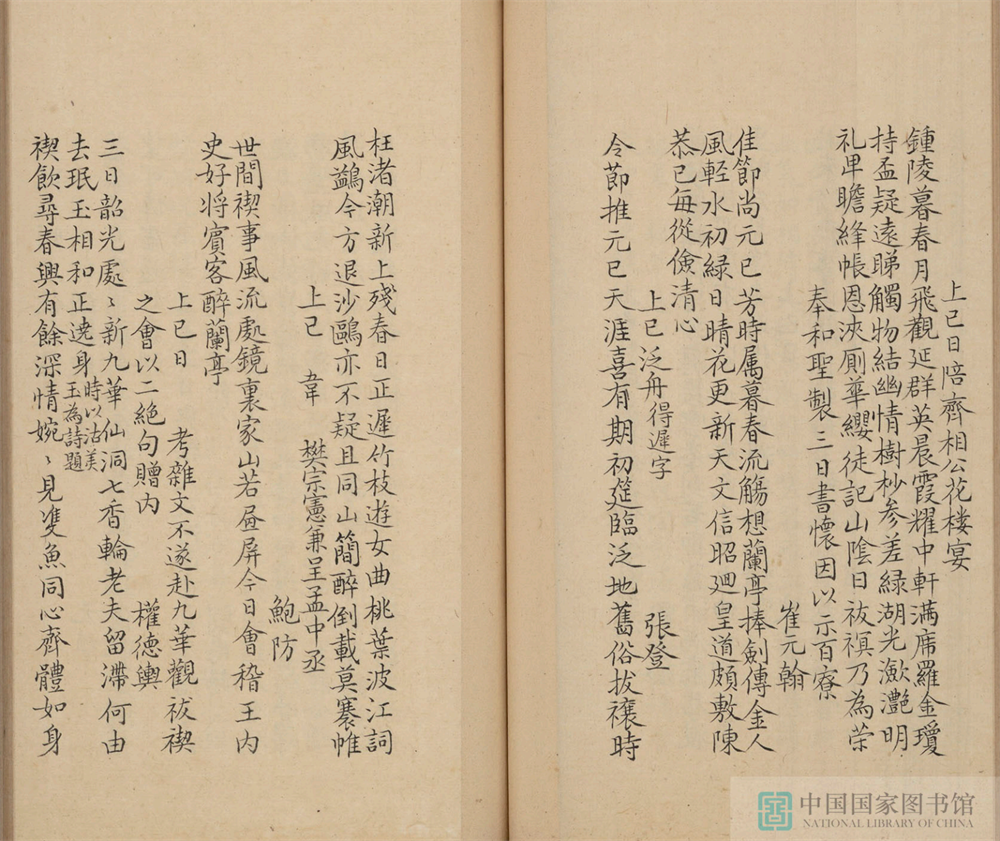 上巳日陪齊相公花楼宴
鍾陵暮春月飛觀延群英晨霞耀中軒满席羅金瓊
持盃疑遠睇觸物結幽情樹杪参差緑湖光瀲灧明
礼畢瞻絳帳恩浹厠華纓徒記山陰日祓禊乃為荣
奉和聖製三日書懷因以示百寮
崔元翰
佳節尚元巳芳時属暮春流觴想蘭亭捧劍傳金人
風軽水初緑日晴花更新天文信昭廻皇道頗敷陳
恭已每從儉清心
上巳泛舟得遲字
張登
令節推元巳天涯喜有期初筵臨泛地舊俗拔禳時
枉渚潮新上殘春日正遲竹枝遊女曲桃葉波江詞
風鷁今方退沙鷗亦不疑且同山簡醉倒載莫褰帷
上巳 韋 樊宗憲兼呈孟中丞
鮑防
世間禊事風流處鏡裏家山若昼屏今日會稽王内
史好将賓客醉蘭亭
上巳日 考雜文不遂赴九華觀祓禊
之會以二絶句贈内 權德輿
三日韶光處〻新九華仙洞七香輪老夫留滯何由
去珉玉相和正遶身 時以沽美
玉為詩題
禊飲尋春興有餘深情婉〻見雙魚同心齊體如身
中国国家图书馆
NATIONAL LIBRARY OF CHINA